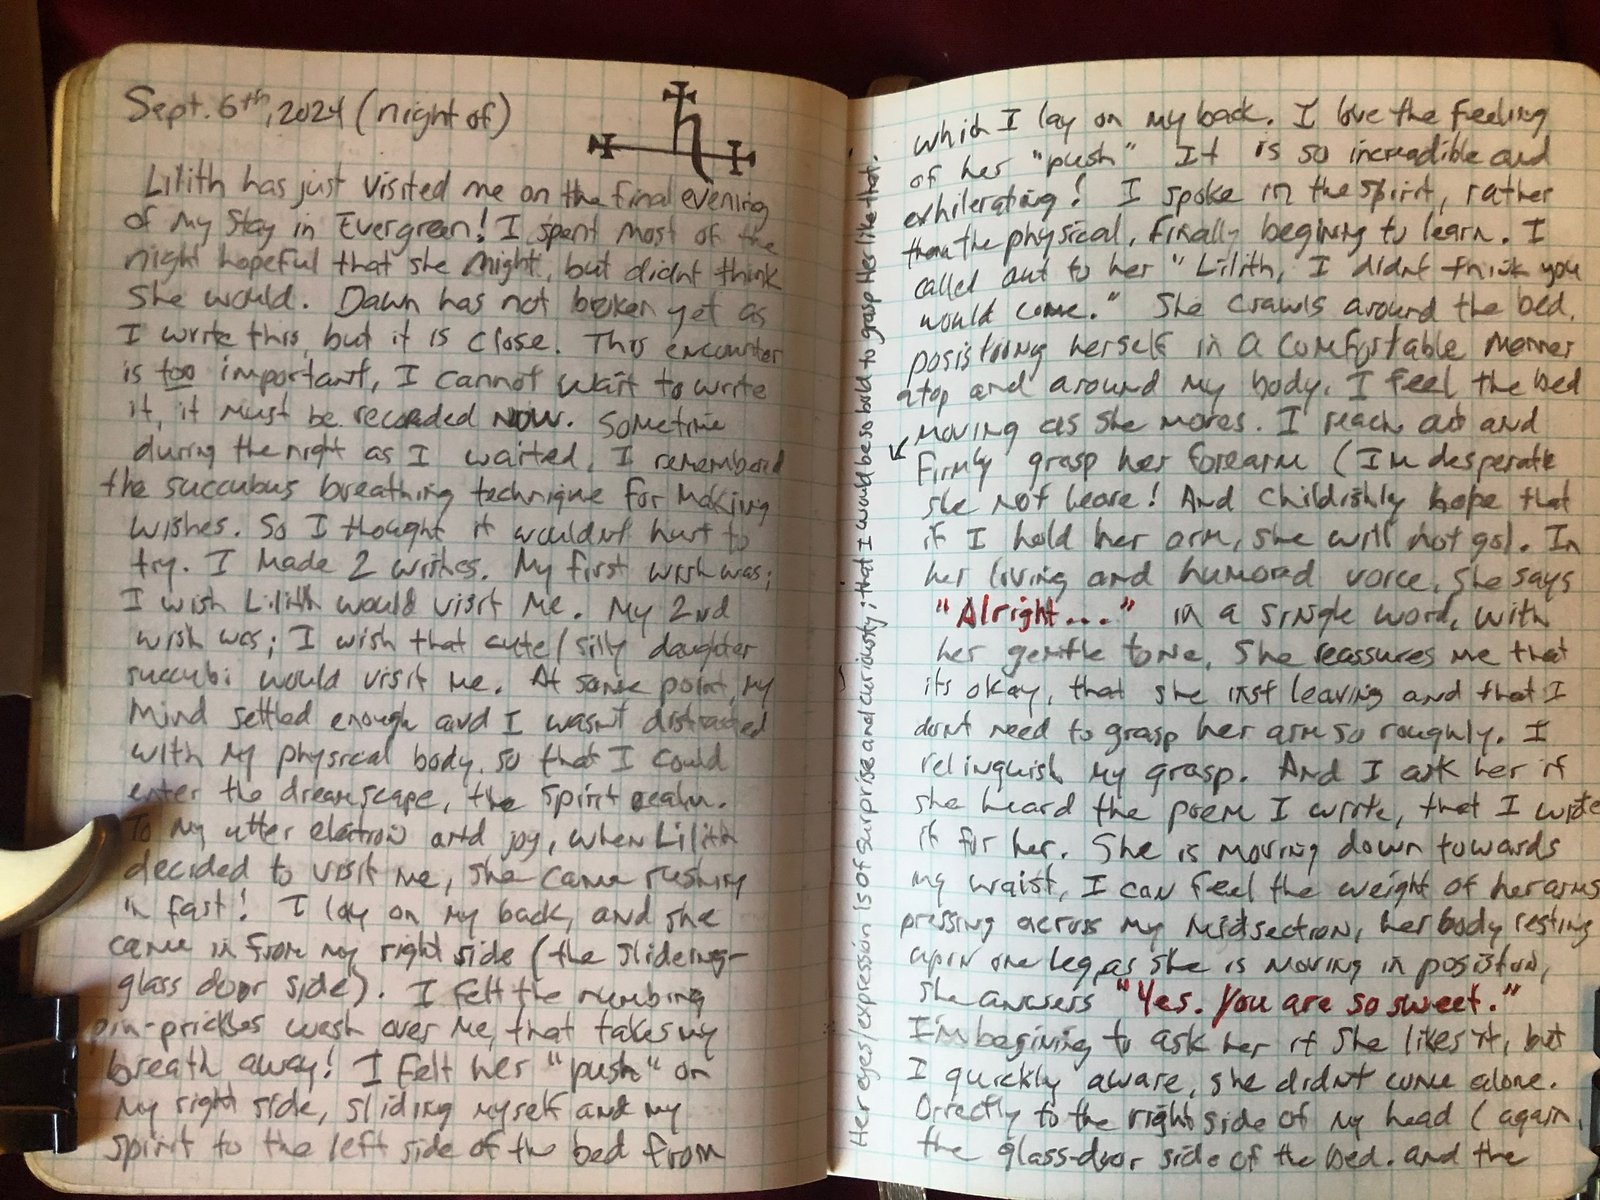 Sept. 6th, 2024 (night of)
Lilith has just visited me on the final evening
of my stay in Evergreen! I spent most of the
night hopeful that she might, but didnt think
she would. Dawn has not broken yet as
I write this, but it is close. This encounter
is too important, I cannot wait to write
it, it must be recorded NOW. Sometime
during the night as I waited, I remembered
the succubus breathing technique for making
wishes. So I thought it wouldnt hurt to
try. I made 2 wishes. My first wish was;
I wish Lilith would visit me. My 2nd
wish was; I wish that cute/silly daughter
succubi would visit me. At some point, my
mind settled enough and I wasnt distracted
with my physical body, so that I could
enter the dreamscape, the spirit realm.
To my utter elation and joy, when Lilith
decided to visit me, she came rushing
in fast! I lay on my back, and she
came in from my right side (the slidering-
glass door side). I felt the numbing
pin-prickles wash over me, that takes my
breath away! I felt her "push" on
my right side, sliding myself and my
spirit to the left side of the bed from
Her eyes/expression is of surprise and curiousity; that I would be so bold to grasp Her like that.
which I lay on my back. I love the feeling
of her "push" It is so incredible and
exhilerating! I spoke in the spirit, rather
than the physical, finally begining to learn. I
called out to her "Lilith, I didnt think you
would come." She crawls around the bed,
posistioning herself in a comfortable manner
atop and around my body. I feel the bed
moving as she moves. I reach out and
firmly grasp her forearm (Im desperate
she not leave! And childishly hope that
if I hold her arm, she will not go). In
her living and humored voice, she says
"Alright..." in a single word, with
her gentle tone, she reassures me that
its okay, that she isnt leaving and that I
dont need to grasp her arm so roughly. I
relinquish my grasp. And I ask her if
she heard the poem I wrote, that I wrote
it for her. She is moving down towards
my waist, I can feel the weight of her arms
pressing across my midsection, her body resting
upon one leg, as she is moving in posistion,
she answers "Yes. You are so sweet."
I'm begining to ask her if she likes it, but
I quickly aware, she didnt come alone.
Directly to the right side of my head (again,
the glass-door side of the bed. and the